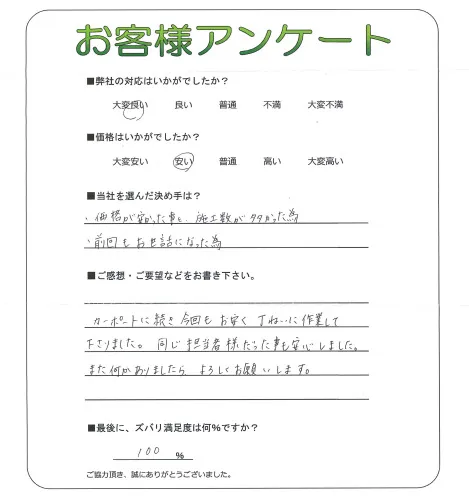 お客様アンケート
■弊社の対応はいかがでしたか？
大変良い 良い 普通 不満 大変不満
■価格はいかがでしたか？
大変安い 安い 普通 高い 大変高い
■当社を選んだ決め手は？
・価格が安かった事と、施工数が多かった為
・前回もお世話になった為
■ご感想・ご要望などをお書き下さい。
カーポートに続き今回もお安く丁ねいに作業して
下さりました。同じ担当者様だった事も安心しました。
また何かありましたら よろしくお願いします。
■最後に、ズバリ満足度は何%ですか？
100 %
ご協力頂き、誠にありがとうございました。